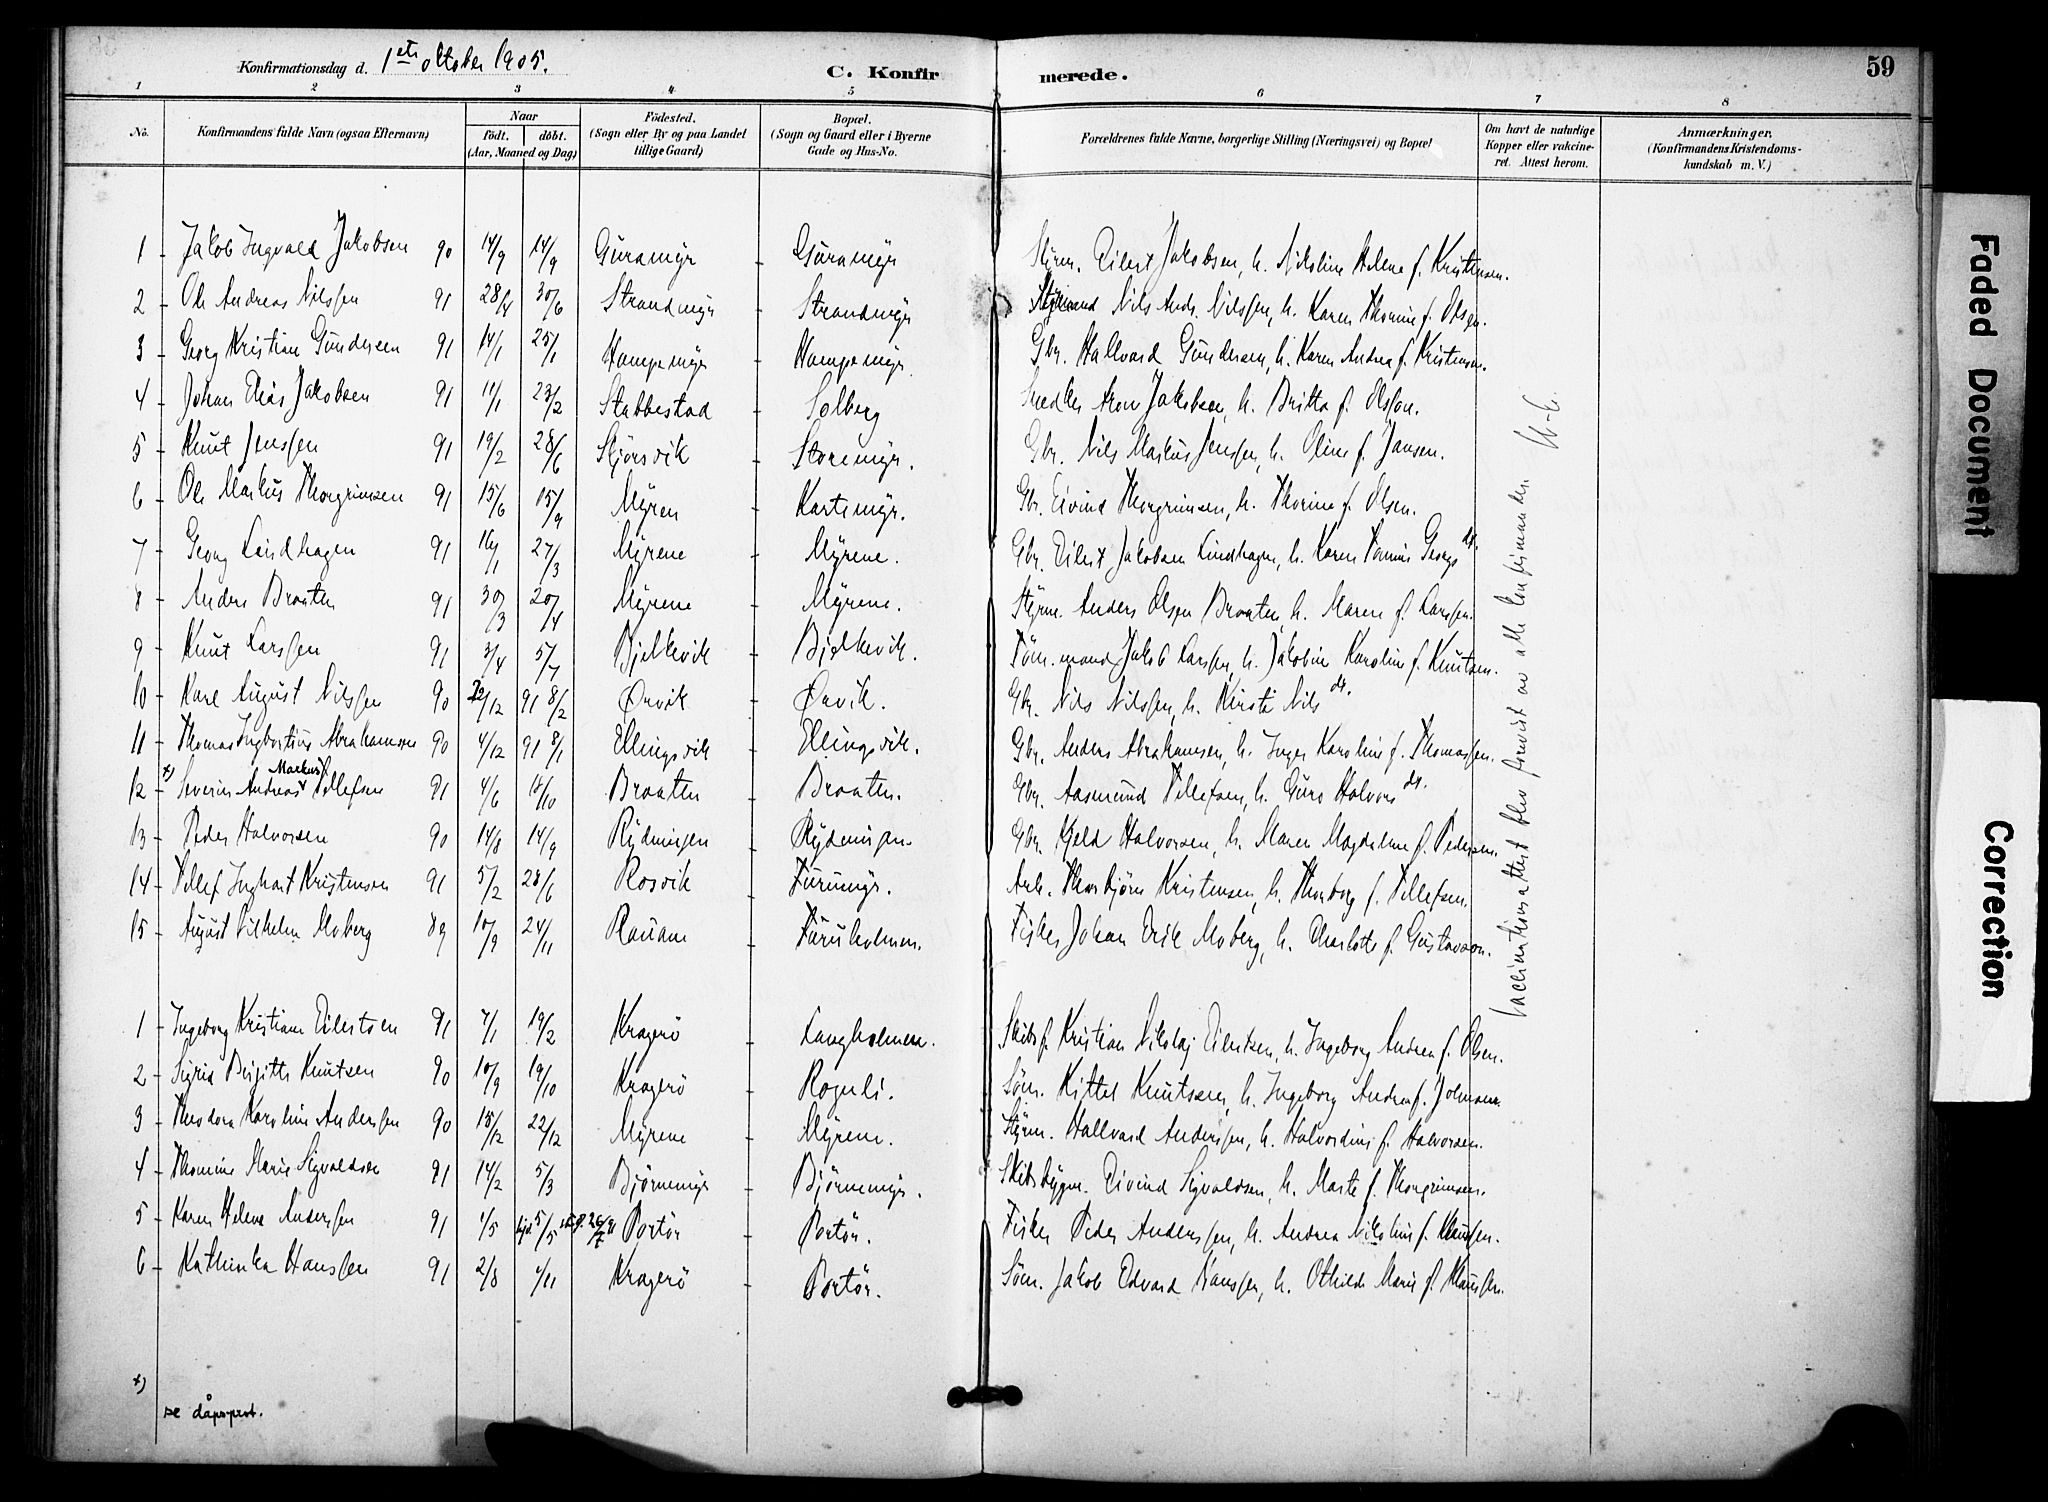 Konfirmationsdag d. 1ste oktober 1905.
C. Konfirmerede.
59
1 2 3 4 5 6 7 8
No. Konfirmandens fulde Navn (ogsaa Efternavn) Naar født. døbt. (Aar, Maaned og Dag) Fødested. (Sogn eller By og paa Landet tillige Gaard) Bopæl. (Sogn og Gaard eller i Byerne Gade og Hus-No.) Forældrenes fulde Navne, borgerlige Stilling (Næringsvei) og Bopæl Om havt de naturlige Kopper eller vakcineret. Attest herom. Anmærkninger. (Konfirmandens Kristendomskundskab m. V.)
1 - Jakob Ingvald Jakobsen 90 14/9 14/9 Guramyr - Guramyr Styrm. Eilert Jakobsen, h. Nikoline Helene f. Kristensen.
2 - Ole Andreas Nilssen 91 28/4 30/6 Strandmyr - Strandmyr Nils Andr. Nilssen, h. Karen Thomine f. Olsen.
3 - Georg Kristian Gundersen 91 14/1 25/1 Hampemyr - Hampemyr. Gbr. Hallvard Gundersen, h. Karen Andrea f. Kristensen.
4 - Johan Elias Jakobsen 91 11/1 23/2 Stabbestad - Solberg Snedker Aron Jakobsen, h. Britta f. Olsson.
5 - Knut Jenssen 91 19/2 28/6 Skjørsvik - Storemyr. Gbr. Nils Markus Jenssen, h. Oline f. Jansen.
6 - Ole Markus Thorgrimsen 91 15/6 15/9 Myren - Kartemyr. Gbr. Eivind Thorgrimsen, h. Thorine f. Olsen.
7 - Georg Lindhagen 91 16/1 27/3 Myrene - Myrene. Gbr. Eilert Jakobsen Lindhagen, h. Karen Tomine Georgs dt.
8 - Anders Braaten 91 30/3 20/4 Myrene - Myrene. Styrm. Anders Olsen Braaten, h. Maren f. Larssen.
9 - Knut Larssen 91 3/4 5/7 Bjelkevik - Bjelkevik. Tømmermand Jakob Larssen, h. Jakobine Karoline f. Knutsen.
10 - Karl August Nilssen 90 22/12 91 8/2 Ørvik - Ørvik. Gbr. Nils Nilssen, h. Kirsti Nils dt.
11 - Thomas Ingbertius Abrahamsen 90 4/12 91 8/1 Ellingsvik - Ellingsvik. Gbr. Anders Abrahamsen, h. Inger Karoline f. Thomassen.
x) Markus
12 - Severin Andreas Tellefsen 91 4/6 18/10 Braaten - Braaten. Gbr. Aasmund Tellefsen, h. Guro Halvors dt.
13 - Peder Halvorsen 90 14/8 14/9 Rydningen - Rydningen. Gbr. Kjeld Halvorsen, h. Maren Magdalene f. Pedersen.
14 - Tellef Inghart Kristensen 91 5/2 28/6 Rosvik - Furumyr. Arb. Thorbjørn Kristensen, h. Thorborg f. Tellefsen.
15 - August Vilhelm Moberg 89 10/9 24/11 Rauane - Furuholmen. Fisker Johan Erik Moberg, h. Charlotte f. Gustavson.
Vaccinationsattest blev forevist av alle konfirmander.
1 - Ingeborg Kristiane Eilertsen 91 7/1 19/2 Kragerö - Langholmen. Skibsf. Kristian Nikolaj Eilertsen, h. Ingeborg Andrea f. Olsen.
2 - Sigrid Birgitte Knutsen 90 10/9 19/10 Kragerö - Rognli. Søm. Kittel Knutsen, h. Ingeborg Andrea f. Johnsen.
3 - Theodora Karoline Anderssen 90 15/12 22/12 Myrene - Myrene. Styrm. Hallvard Anderssen, h. Halvordine f. Halvorsen.
4 - Thomine Marie Sigvaldsen 91 14/2 5/3 Bjørnemyr - Bjørnemyr. Skibsbygm. Eivind Sigvaldsen, h. Marte f. Thorgrimsen.
5 - Karen Helene Anderssen 91 1/5 hjd. 5/5 Portør - Portør. Fisker Peder Anderssen, h. Andrea Nikoline f. Klausen.
6 - Kathinka Hanssen 91 2/8 1/11 Kragerö - Portör. Søm. Jakob Edvard Hanssen, h. Othilde Marie f. Klaussen.
x)
se dåpsprot.
Faded Document
Correction